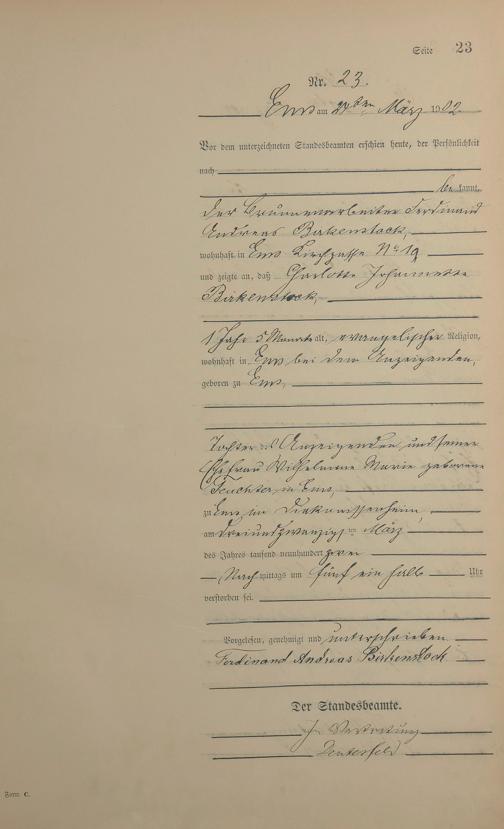 Seite 23
Nr. 23.
Ems am 24ten März 1902.
Vor dem unterzeichneten Standesbeamten erschien heute, der Persönlichkeit
nach
bekannt,
der Brunnenarbeiter Ferdinand
Andreas Birkenstock,
wohnhaft in Ems Kirchgasse No 19
und zeigte an, daß Charlotte Johannette
Birkenstock,
1 Jahr 5 Monate alt, evangelischer Religion,
wohnhaft in Ems, bei dem Anzeigenden,
geboren zu Ems,
Tochter des Anzeigenden und seiner
Ehefrau Wilhelmine Marie geborene
Feuchter, in Ems,
zu Ems im Diakonissenheim,
am dreiundzwanzigsten März
des Jahres tausend neunhundert zwei
Nachmittags um fünf ein halb Uhr
verstorben sei.
Vorgelesen, genehmigt und unterschrieben
Ferdinand Andreas Birkenstock
Der Standesbeamte.
In Vertretung
Form C.